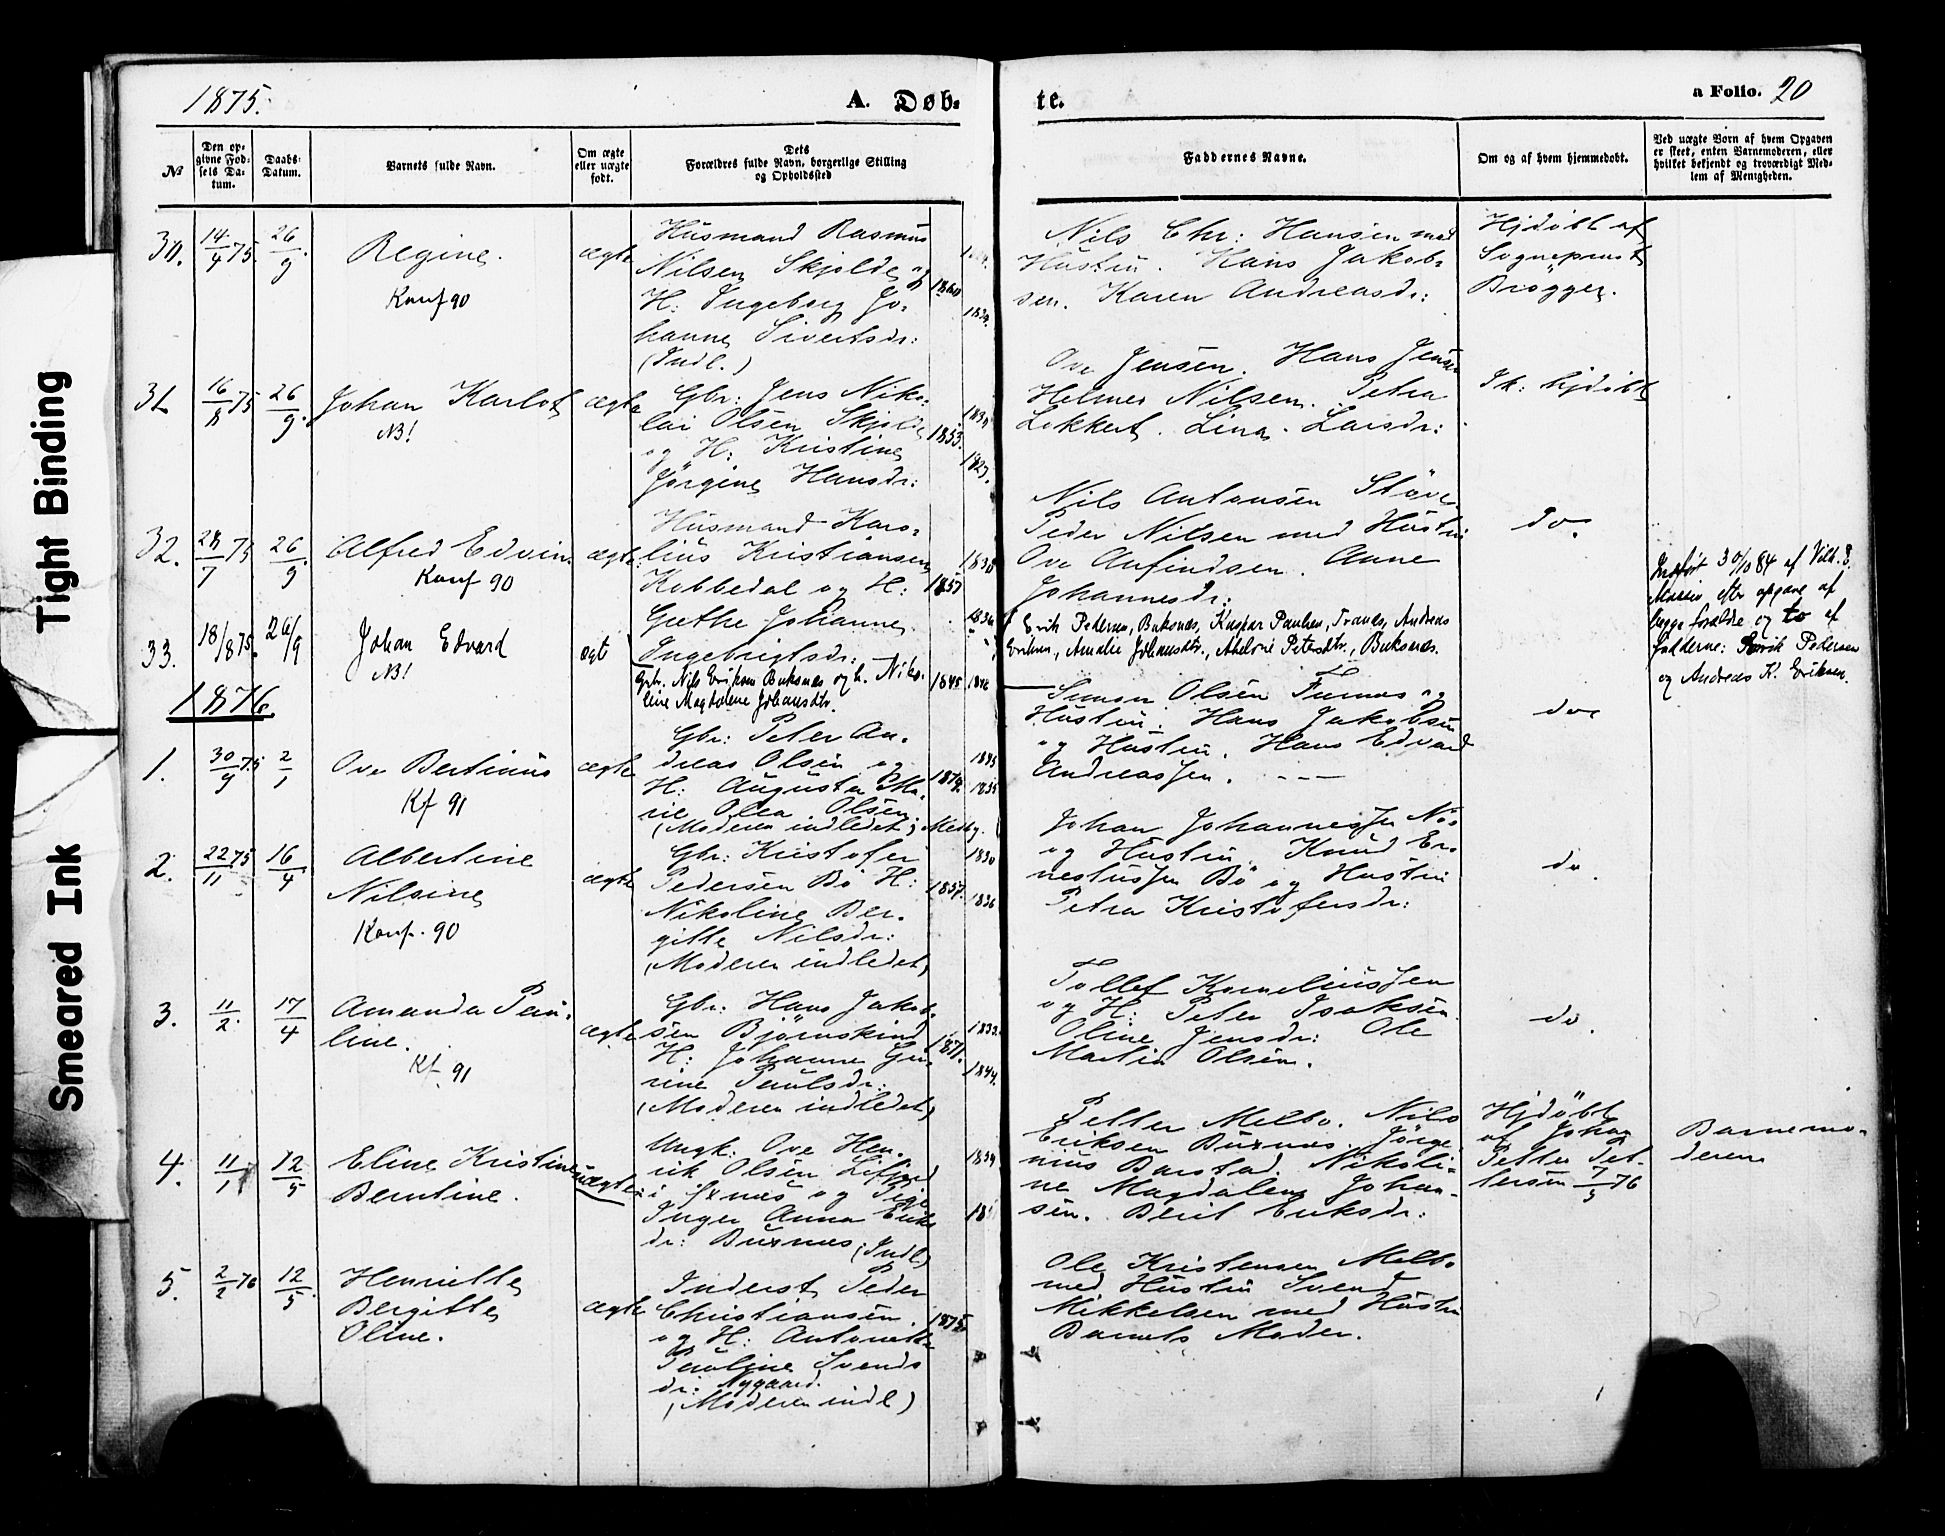 Tight Binding
Smeared Ink
1875.
A. Døb-
te.
a Folio. 20
No
Den op-
givne Fød-
sels Da-
tum.
Daabs-
Datum.
Barnets fulde Navn.
Om ægte
eller uægte
født.
Dets
Forældres fulde Navn, borgerlige Stilling
og Opholdssted
Faddernes Navne.
Om og af hvem hjemmedøbt.
Ved uægte Børn af hvem Opgaven
er skeet, enten Barnemoderen, eller
hvilket bekjendt og troværdigt Med-
lem af Menigheden.
30.
14/4 75.
26/9.
Regine.
Konf 90
ægte
Husmand Rasmus
Nilsen Skjolde og
H: Ingeborg Jo-
hanne Sivertsdr:
(Indl.)
1860
1834.
Nils Chr: Hansen med
Hustru. Hans Jakob-
sen. Karen Andreasdr:
Hjdøbt af
Sogneprest
Brøgger.
31.
16/8 75
26/9.
Johan Karlot
NB!
ægte
Gbr: Jens Niko-
lai Olsen Skjolde
og H: Kristine
Jørgine Hansdr:
1853.
1827.
Ove Jensen. Hans Jensen
Helmer Nilsen. Petra
Lekkert. Lina Larsdr:
Ik: hjdøbt
32.
28/7 75
26/9.
Alfred Edvin
Konf 90
ægte
Husmand Karo-
lius Kristiansen
Kobbedal og H:
Grethe Johanne
Ingebrigtsdr:
1857
1838
1836
Nils Antonsen Støve
Peder Nilsen med Hustru
Ove Anfindsen. Anne
Johannesdr:
do.
33.
18/8 75.
26/9
Johan Edvard
NB!
ægt
Gbr. Nils Eriksen Buksnæs og h. Niko-
line Magdalene Johansdtr.
1845
1846
Erik Pedersen, Buksnæs, Kaspar Paulsen, Tranes, Andreas
Eriksen, Amalie Johansdtr., Abelone Petersdtr., Buksnæs.
Indført 30/10 84 af Vilh. P.
efter opgave af
begge forældre og to af
fadderne: Erik Pedersen
og Andreas K. Eriksen.
1876.
1.
30/9 75
2/1
Ove Bertinius
Kf 91
ægte
Gbr: Peter An-
dreas Olsen og
H: Augusta Ma-
rie Olea Olsen
(Moderen indledet) Melby.
1874.
1845
1835
Simon Olsen Furnes og
Hustru. Hans Jakobsen
og Hustru. Hans Edvard
Andreassen. - —
do
2.
22/11 75
16/4
Albertine
Nilsine
Konf. 90
ægte
Gbr: Kristofer
Pedersen Bö H:
Nikoline Ber-
gitte Nilsdr:
(Moderen indledet)
1857.
1830
1836
Johan Johannessen
og Hustru. Knud Er-
nestussen Bö og Hustru
Petra Kristofersdr:
do.
3.
11/2.
17/4
Amanda Pau-
line.
Kf. 91
ægte
Gbr: Hans Jakob-
sen Björnskind
H: Johanne Gu-
rine Paulsdr:
(Moderen indledet)
1871.
1833.
1844.
Tollef Korneliussen
og H: Peter Isaksen.
Oline Jensdr: Ole
Martin Olsen.
do.
4.
11/1
12/5
Eline Kristine
Berntine.
uægte
Ungk: Ove Hen-
rik Olsen Lifjord
i Øxnes og Pige
Inger Anna Eriks
dr: Buxnæs (Indl)
1839
Petter Melbo. Nils
Eriksen Buxnæs. Jörgi-
nius Barstad. Nikoli-
ne Magdalene Johan-
sen. Berit Eriksdr:
Hjdöbt
af Johan
Petter Pet-
tersen 7/5 76
Barnemo-
deren
5.
2/2 76
12/5.
Henriette
Bergitte
Oline.
ægte
Inderst Peder
Christiansen.
og H: Antonette
Pauline Svends
dr: Nygaard.
(Moderen indl)
1875
Ole Kristensen Melbo
med Hustru Svend
Mikkelsen med Hustru
Barnets Moder.